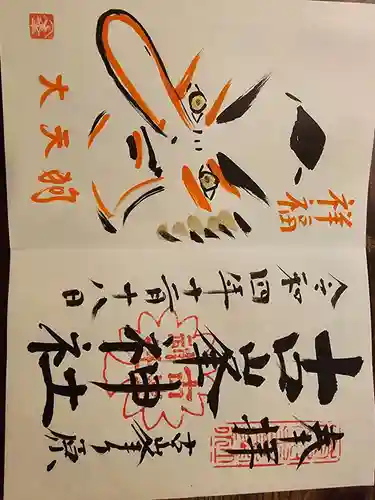 祥福
大天狗
奉拝
古峯神社
令和四年十二月十八日
古峯ヶ原